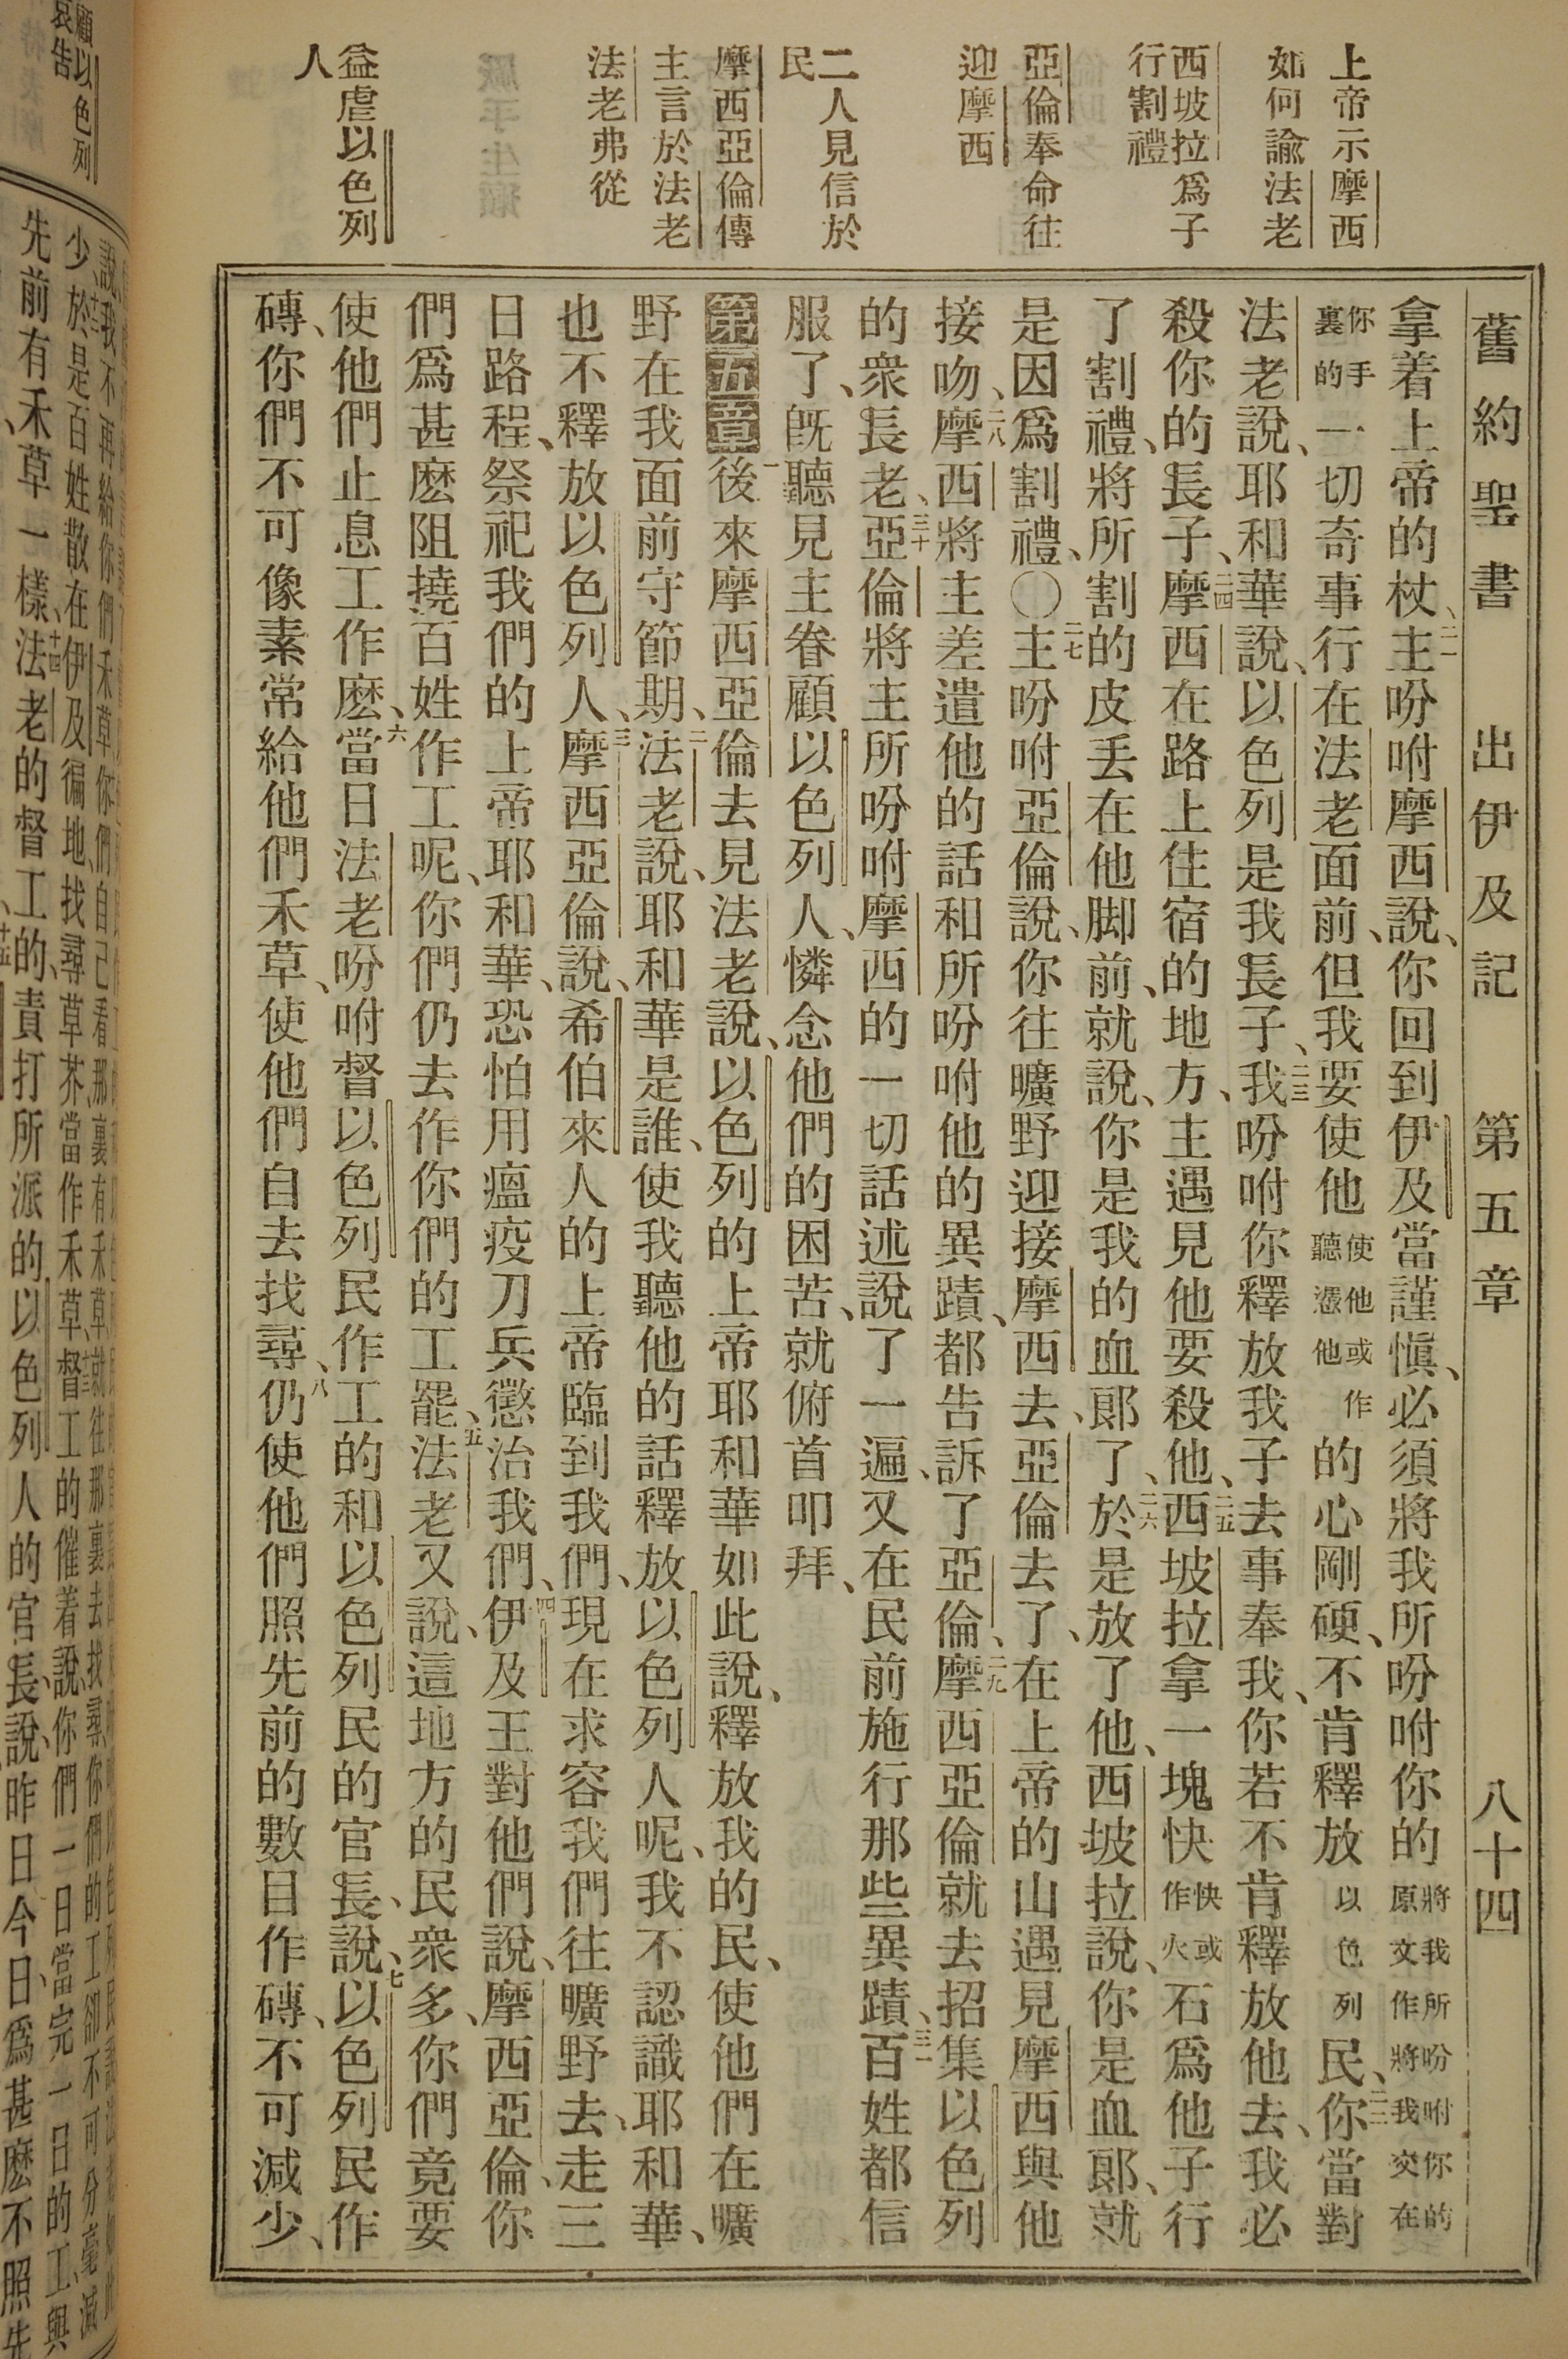 舊約聖書 出伊及記 第五章 八十四
上帝示摩西
如何諭法老
西坡拉爲子
行割禮
亞倫奉命往
迎摩西
二人見信於
民
摩西亞倫傳
主言於法老
法老弗從
益虐以色列
人
拿着上帝的杖、二一主吩咐摩西說、你回到伊及當謹愼、必須將我所吩咐你的將我所吩咐你的原文作將我交在
你手裏的一切奇事行在法老面前、但我要使他使他或作聽憑他的心剛硬、不肯釋放以色列民、二二你當對
法老說、耶和華說、以色列是我長子、二三我吩咐你釋放我子去事奉我、你若不肯釋放他去、我必
殺你的長子、二四摩西在路上住宿的地方、主遇見他要殺他、二五西坡拉拿一塊快快或作火石爲他子行
了割禮、將所割的皮丟在他脚前、就說、你是我的血郞了、二六於是放了他、西坡拉說、你是血郞、就
是因爲割禮、〇二七主吩咐亞倫說、你往曠野迎接摩西去、亞倫去了、在上帝的山遇見摩西與他
接吻、二八摩西將主差遣他的話和所吩咐他的異蹟、都告訴了亞倫、二九摩西亞倫就去招集以色列
的衆長老、三十亞倫將主所吩咐摩西的一切話述說了一遍、又在民前施行那些異蹟、三一百姓都信
服了、旣聽見主眷顧以色列人、憐念他們的困苦、就俯首叩拜、
第五章 一後來摩西亞倫去見法老說、以色列的上帝耶和華如此說、釋放我的民、使他們在曠
野在我面前守節期、二法老說、耶和華是誰、使我聽他的話釋放以色列人呢、我不認識耶和華、
也不釋放以色列人、三摩西亞倫說、希伯來人的上帝臨到我們、現在求容我們往曠野去、走三
日路程、祭祀我們的上帝耶和華、恐怕用瘟疫刀兵懲治我們、四伊及王對他們說、摩西亞倫、你
們爲甚麽阻撓百姓作工呢、你們仍去作你們的工罷、五法老又說、這地方的民衆多、你們竟要
使他們止息工作麽、六當日法老吩咐督以色列民作工的和以色列民的官長、說、七以色列民作
磚、你們不可像素常給他們禾草、使他們自去找尋、八仍使他們照先前的數目作磚、不可減少、
顧以色列
哀告
少、於是百姓散在伊及徧地、找尋草芥、當作禾草、督工的催着說、你們一日當完一日的工、與
先前有禾草一樣、十四法老的督工的、責打所派的以色列人的官長、說、昨日今日爲甚麽不照先